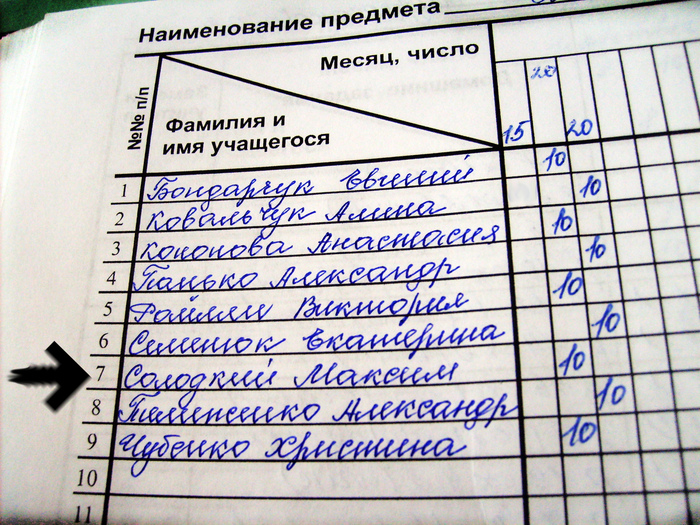 Наименование предмета
Месяц, число
№№ п/п
Фамилия и
имя учащегося
15 20 20
1 Бондарчук Евгений 10
2 Ковальчук Алина 10
3 Кононова Анастасия 10
4 Панько Александр 10
5 Райлян Виктория 10
6 Семенюк Екатерина 10
7 Солодкий Максим 10
8 Тимченко Александр 10
9 Чубенко Христина 10
10
11